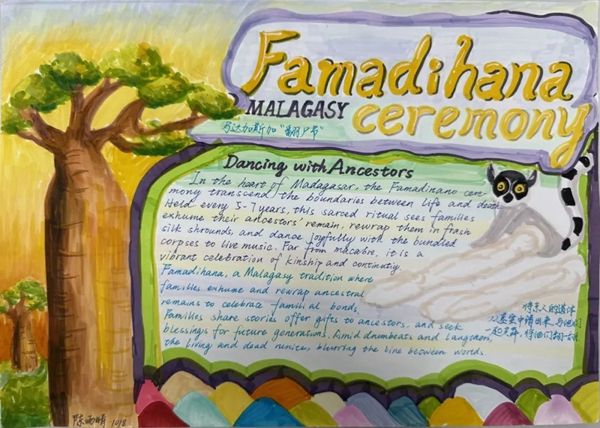 Famadihana
MALAGASY ceremony
马达加斯加“翻尸节”
Dancing with Ancestors
In the heart of Madagasar, the Famadinano cere-
mony transcend the boundaries between life and death
Held every 5-7 years, this sarced ritual sees families
exhume their ancestors' remain, rewrap them in fresh
silk shrouds, and dance joyfully with the bundled
corpses to live music. Far from macabre, it is a
vibrant celebration of kinship and continutiy
Famadihana, a Malagasy tradition where
families exhume and rewrap ancestral
remains to celebrate familial bonds.
Families share stories offer gifts to ancestors, and seek
blessings for future generations. Amid drumbeats and
the living and dead runite, blurring the line between words.
将亲人的遗体
从墓室中请出来,与他们
一起共舞,
陈雨晴 10.8